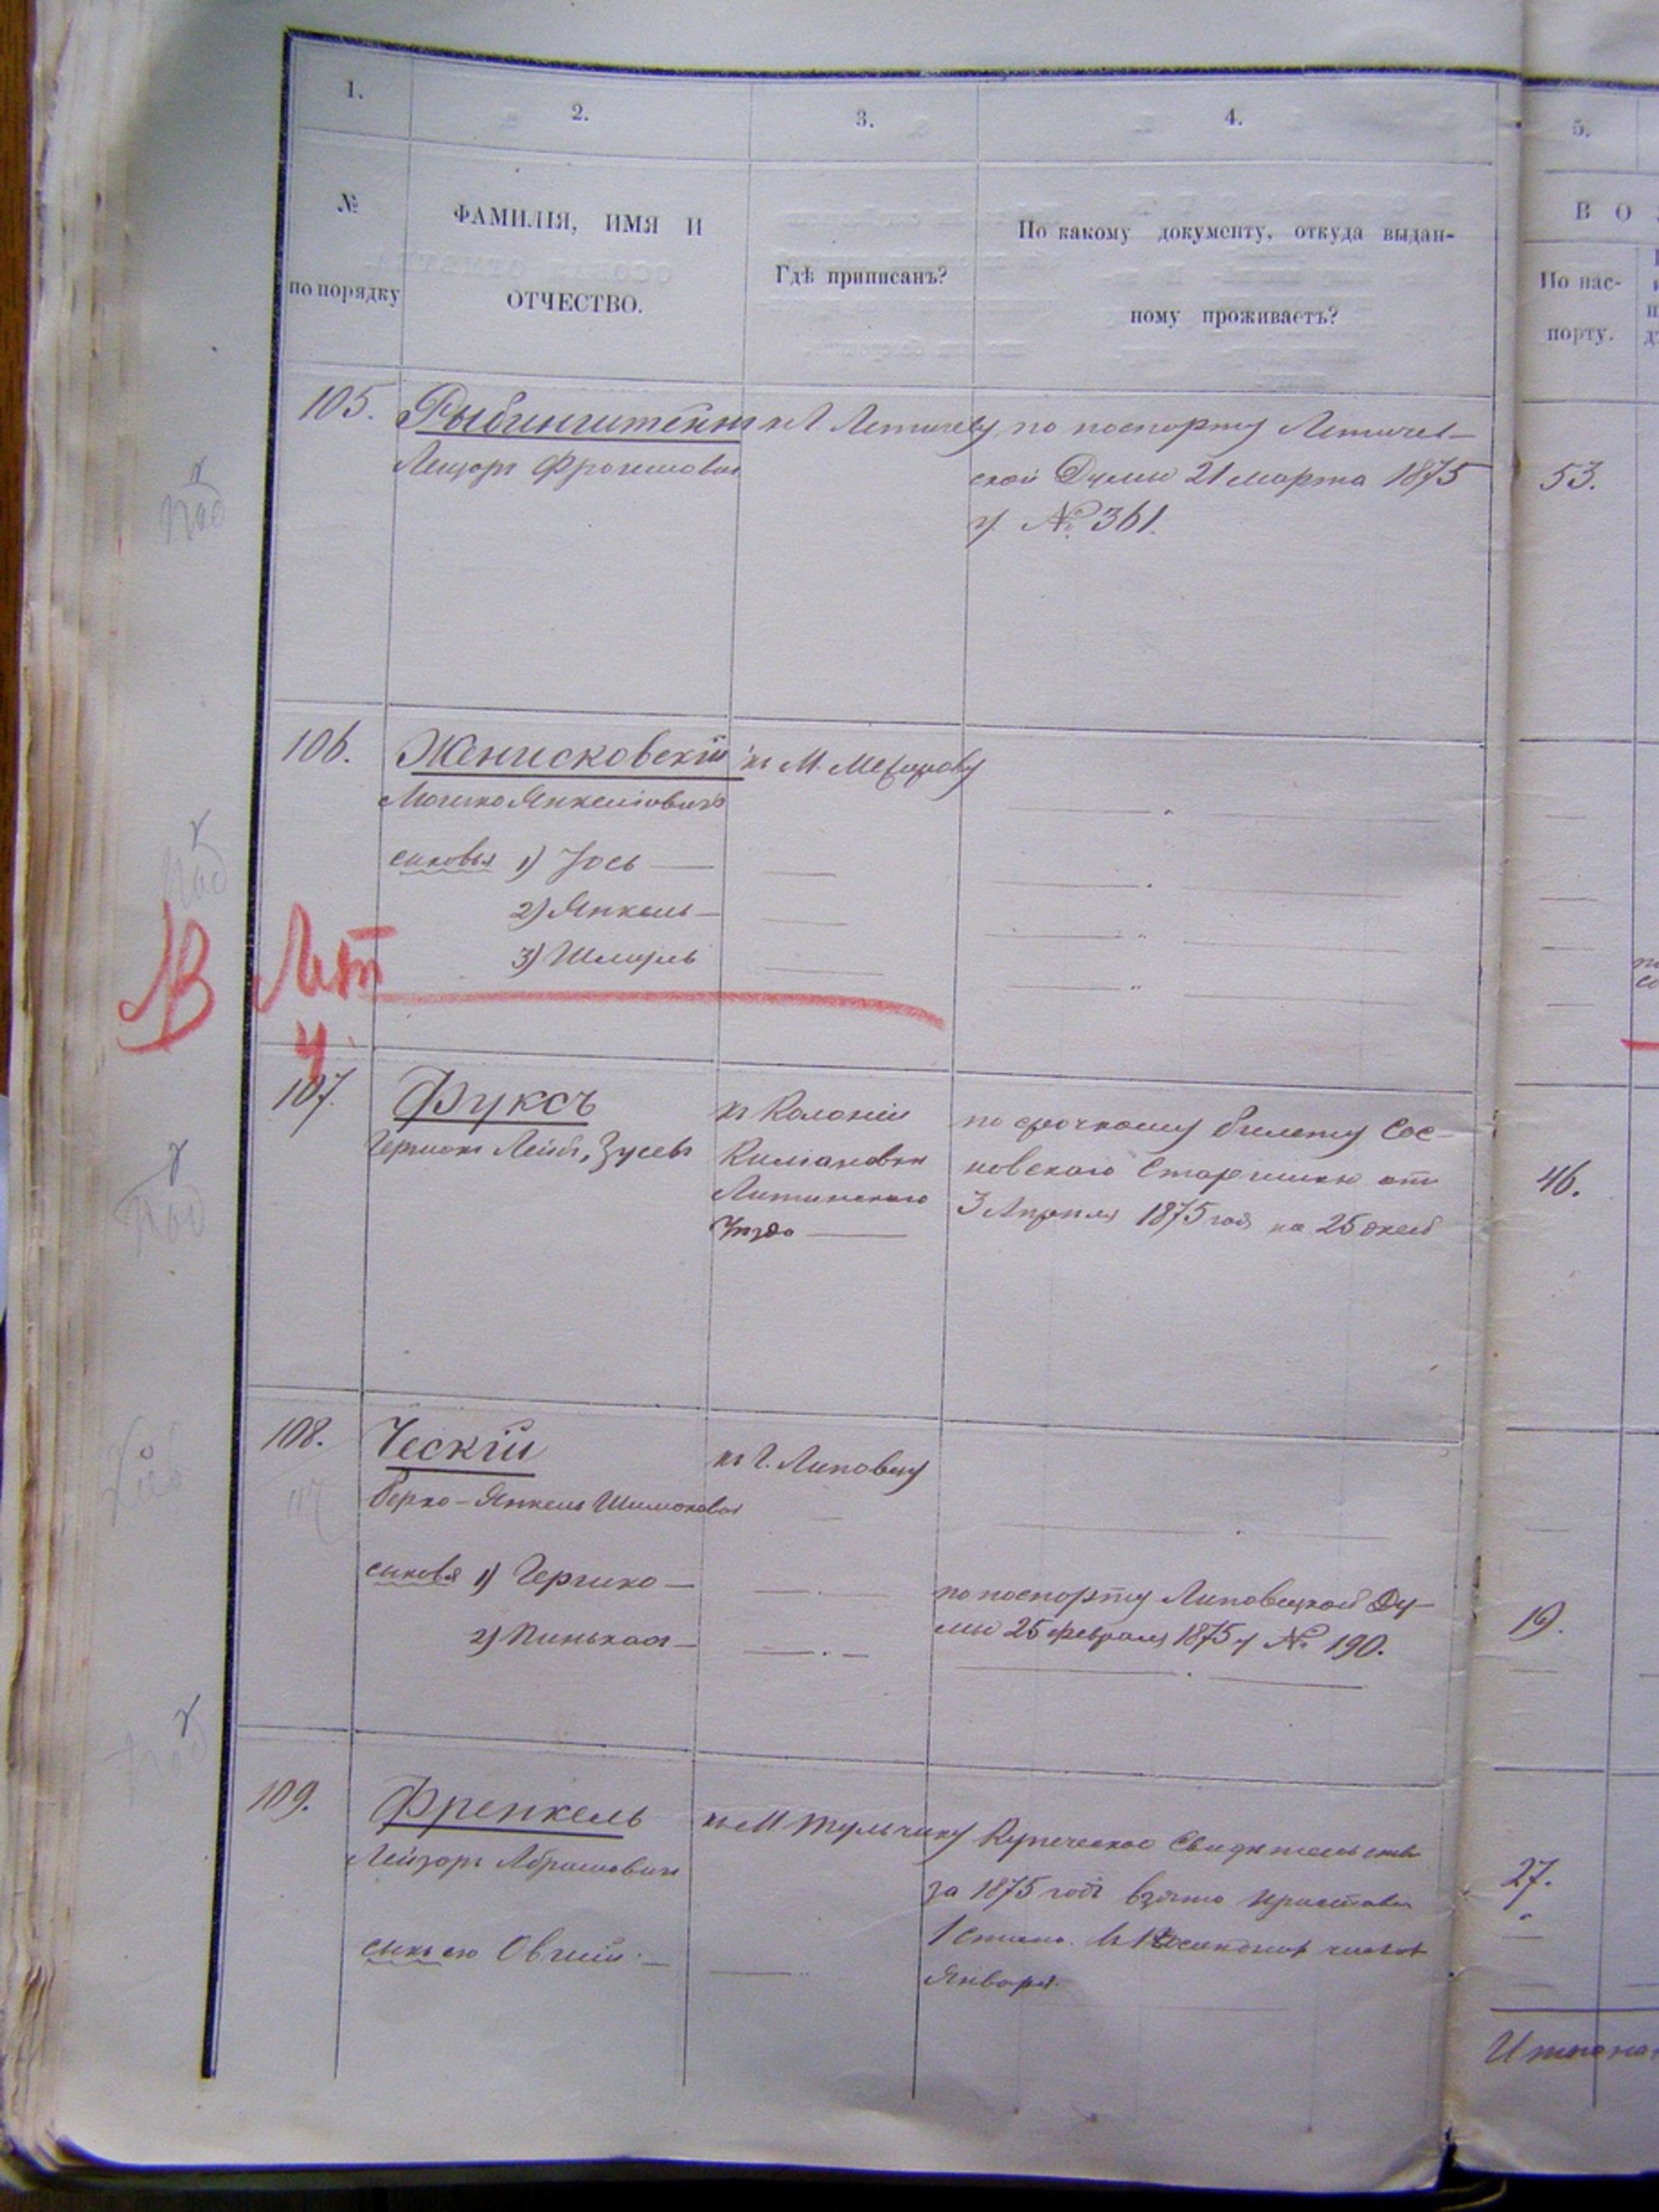 1.
2.
3.
4.
5.
№
по порядку
ФАМИЛІЯ, ИМЯ И
ОТЧЕСТВО.
Гдѣ приписанъ?
По какому документу, откуда выдан-
ному проживаетъ?
В О
По пас-
порту.
105.
Лейзоръ
къ Летичеву
по паспорту Летичев-
ской Думы 21 марта 1875
г. № 361.
53.
106.
Женисковскій
Мошко Янкелiовичъ
къ М.
сыновья 1) Іось
2) Янкель
3) Шмуль
В Лит
у.
107.
Фуксъ
Германъ Лейбъ, Зусевъ
къ Колоніи
Килiановки
Литинского
Уѣзда
по срочному билету Сос-
новскаго Старшины отъ
3 Апрѣля 1875 года на 25 дней
46.
108.
Ческій
Берко-Янкель Шимоновъ
къ Г. Липовцу
сыновья 1) Гершко
2) Пинькасъ
по паспорту Липовецкой Ду-
мы 25 февраля 1875 г № 190.
19.
109.
Френкель
Лейзоръ Абрамовичъ
къ М Тульчину
Купеческое Свидѣтельство
за 1875 годъ взято
Января.
сынъ его Овшій
27.